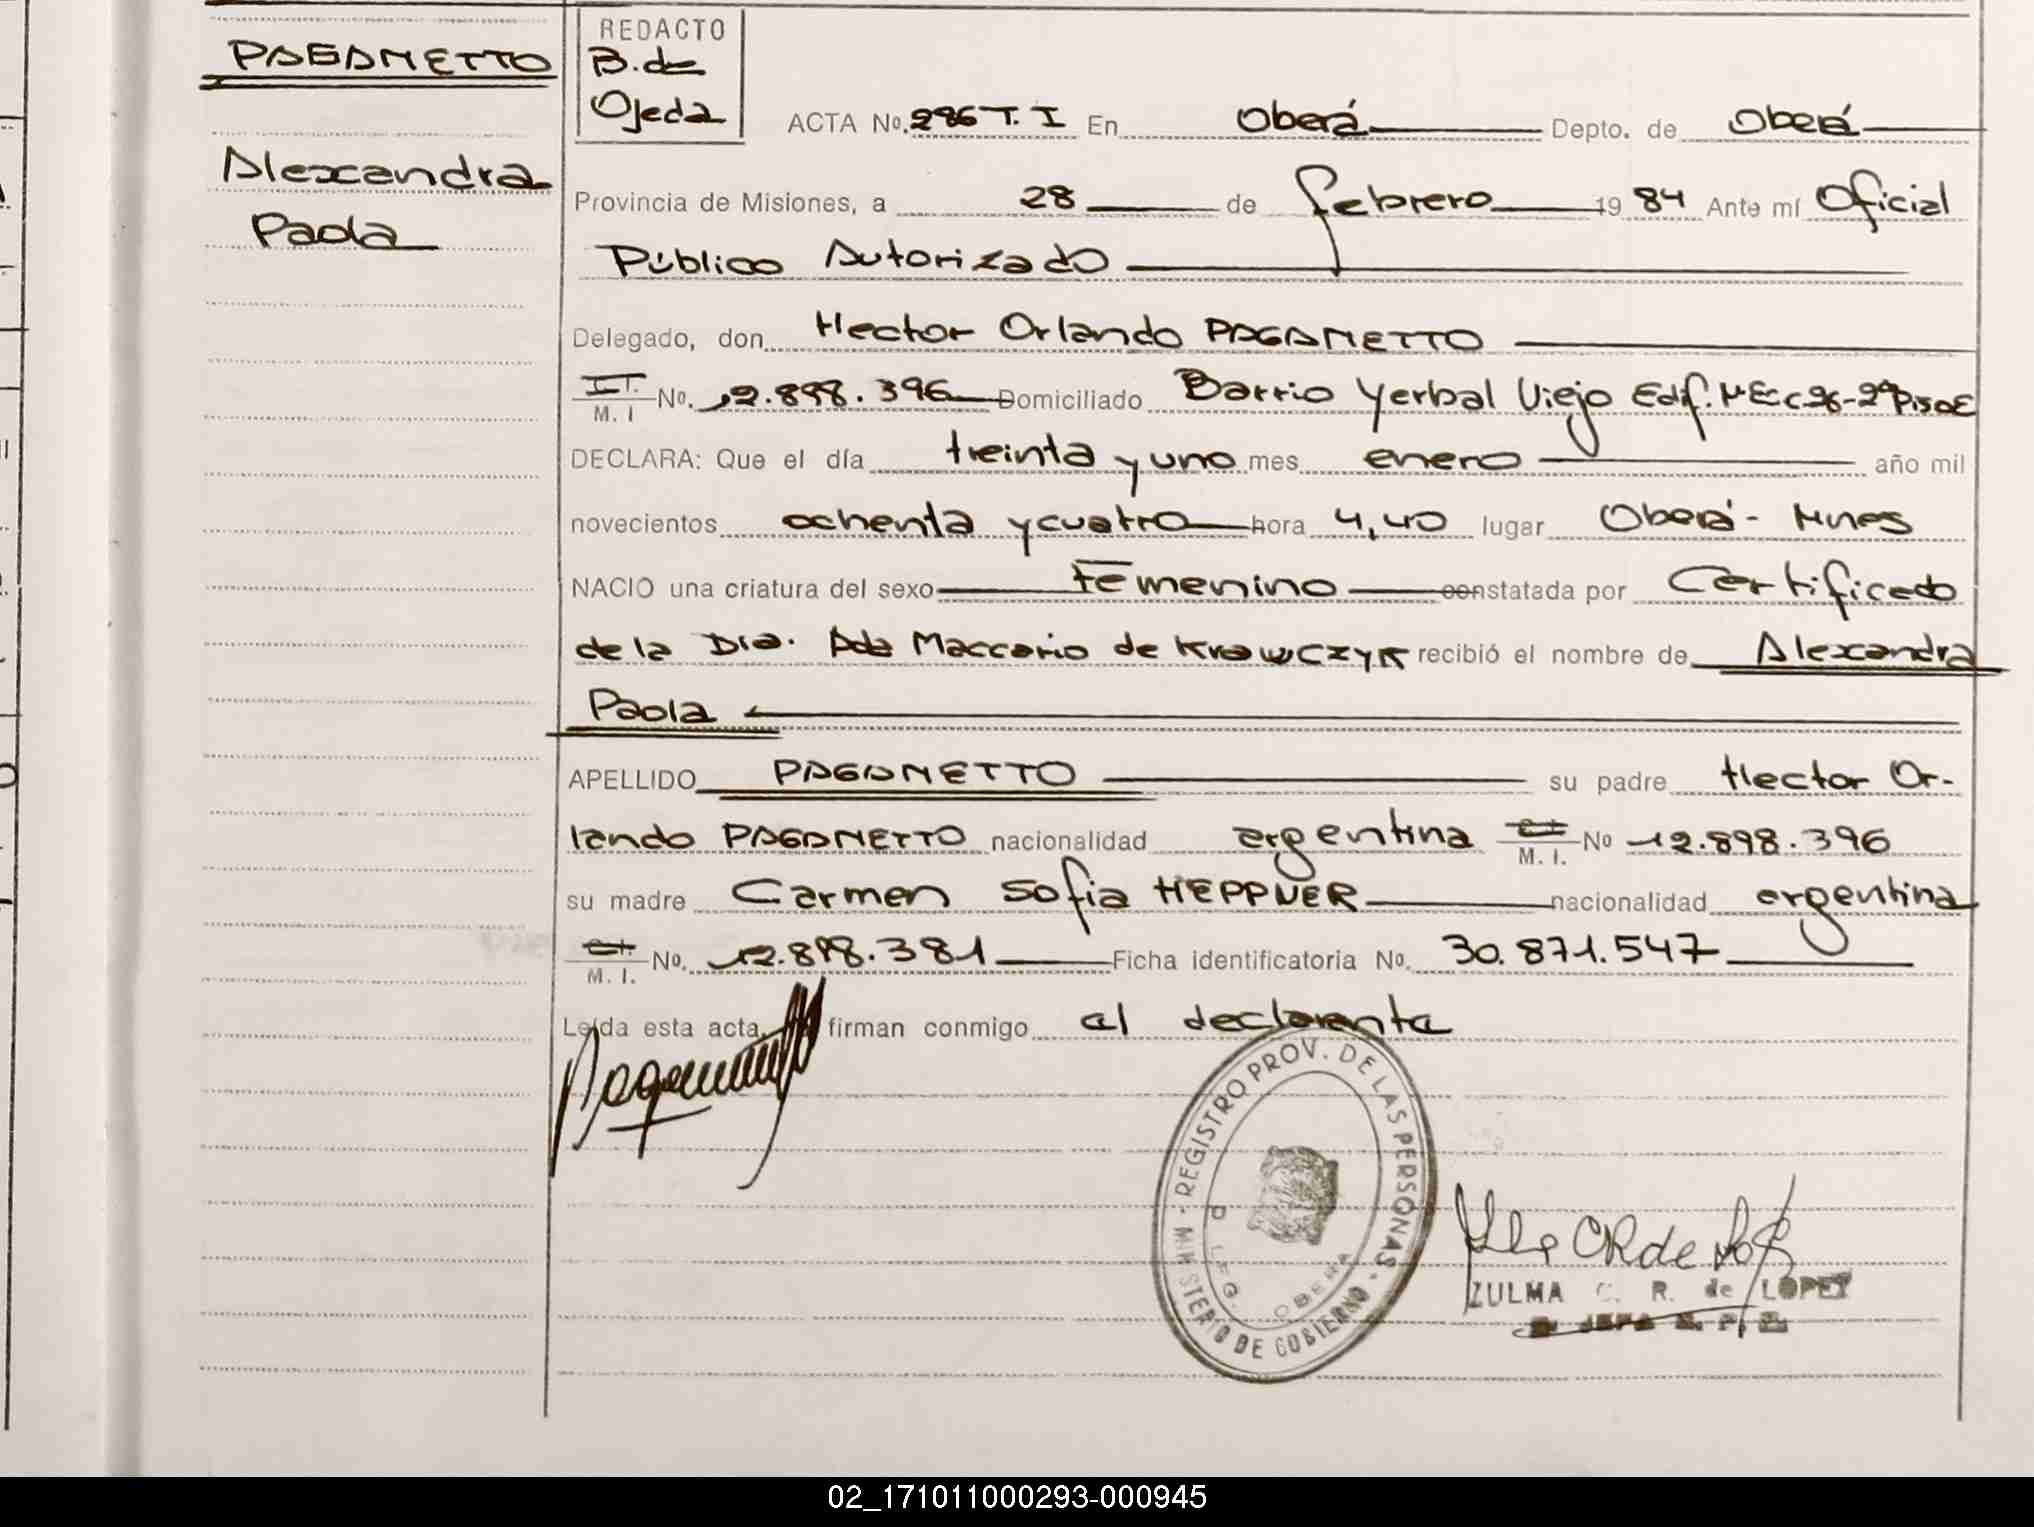 PAGANETTO
Alexandra
Paola
REDACTO
B. de
Ojeda
ACTA No. 286 T. I En Oberá Depto. de Oberá
Provincia de Misiones, a 28 de febrero 19 84 Ante mí Oficial
Público Autorizado
Delegado, don Hector Orlando PAGANETTO
M. I No. 12.898.396 Domiciliado Barrio Yerbal Viejo Edif. 2º Piso E
DECLARA: Que el día treinta y uno mes enero año mil
novecientos ochenta y cuatro hora 4,40 lugar Oberá - Mnes
NACIO una criatura del sexo Femenino constatada por Certificado
de la Dra. Ada Maccario de Krawczyk recibió el nombre de Alexandra
Paola
APELLIDO PAGANETTO su padre Hector Or-
lando PAGANETTO nacionalidad argentina M. I. No 12.898.396
su madre Carmen Sofia HEPPNER nacionalidad argentina
M. I. No. 12.898.381 Ficha identificatoria No. 30.871.547
Leída esta acta, firman conmigo el declarante
REGISTRO PROV. DE LAS PERSONAS - MINISTERIO DE GOBIERNO -
OBERA
ZULMA C. R. de LOPEZ
02_171011000293-000945